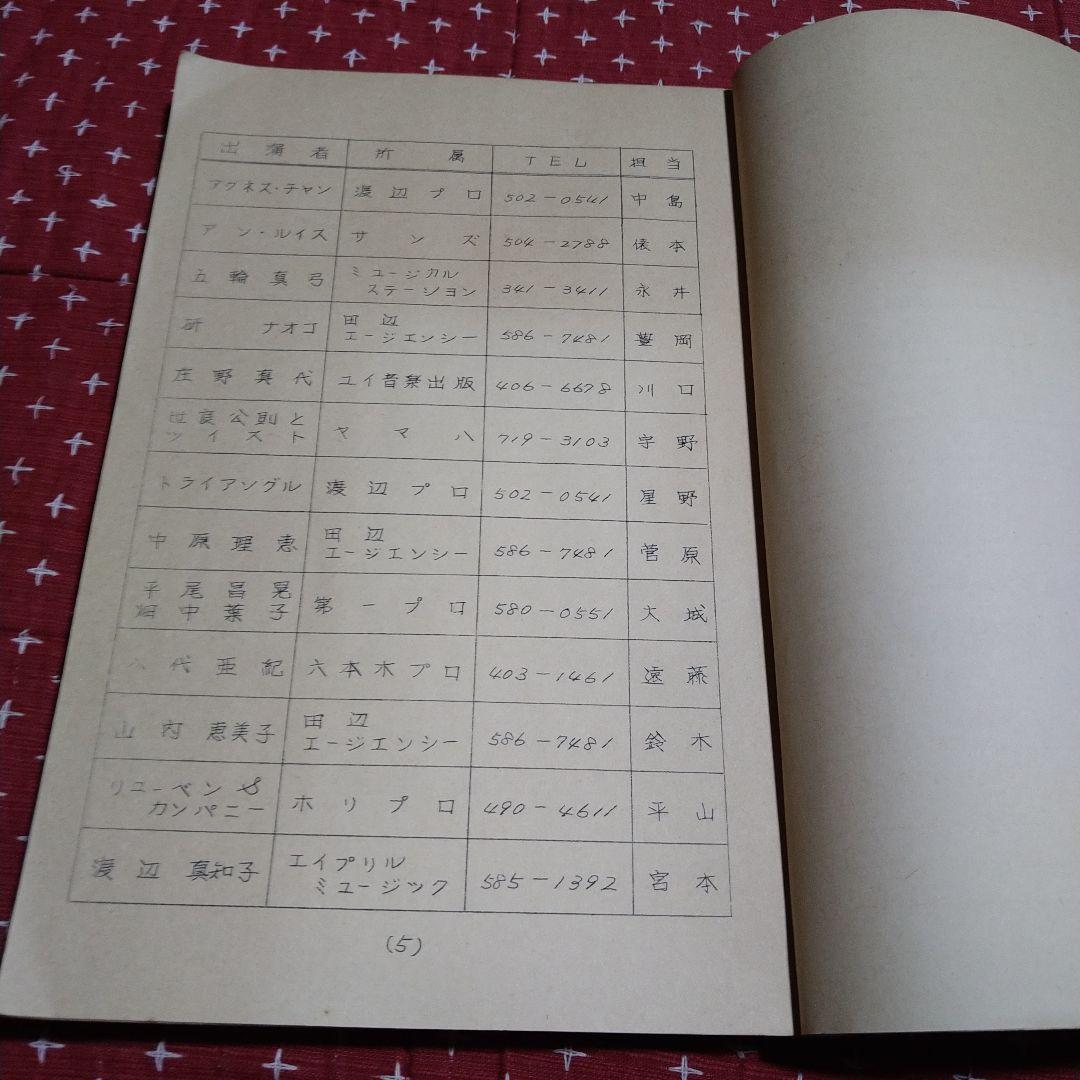 出演者 所属 TEL 担当
アグネス・チャン 渡辺プロ 502-0541 中島
アン・ルイス サンズ 504-2788 俵本
五輪真弓 ミュージカル
ステーション 341-3411 永井
研ナオコ 田辺
エージエンシー 586-7481 豊岡
庄野真代 ユイ音楽出版 406-6678 川口
世良公則と
ツイスト ヤマハ 719-3103 宇野
トライアングル 渡辺プロ 502-0541 星野
中原理恵 田辺
エージエンシー 586-7481 菅原
平尾昌晃
畑中葉子 第一プロ 580-0551 大城
八代亜紀 六本木プロ 403-1461 遠藤
山内恵美子 田辺
エージエンシー 586-7481 鈴木
リューベン&
カンパニー ホリプロ 490-4611 平山
渡辺真知子 エイプリル
ミュージック 585-1392 宮本
(5)